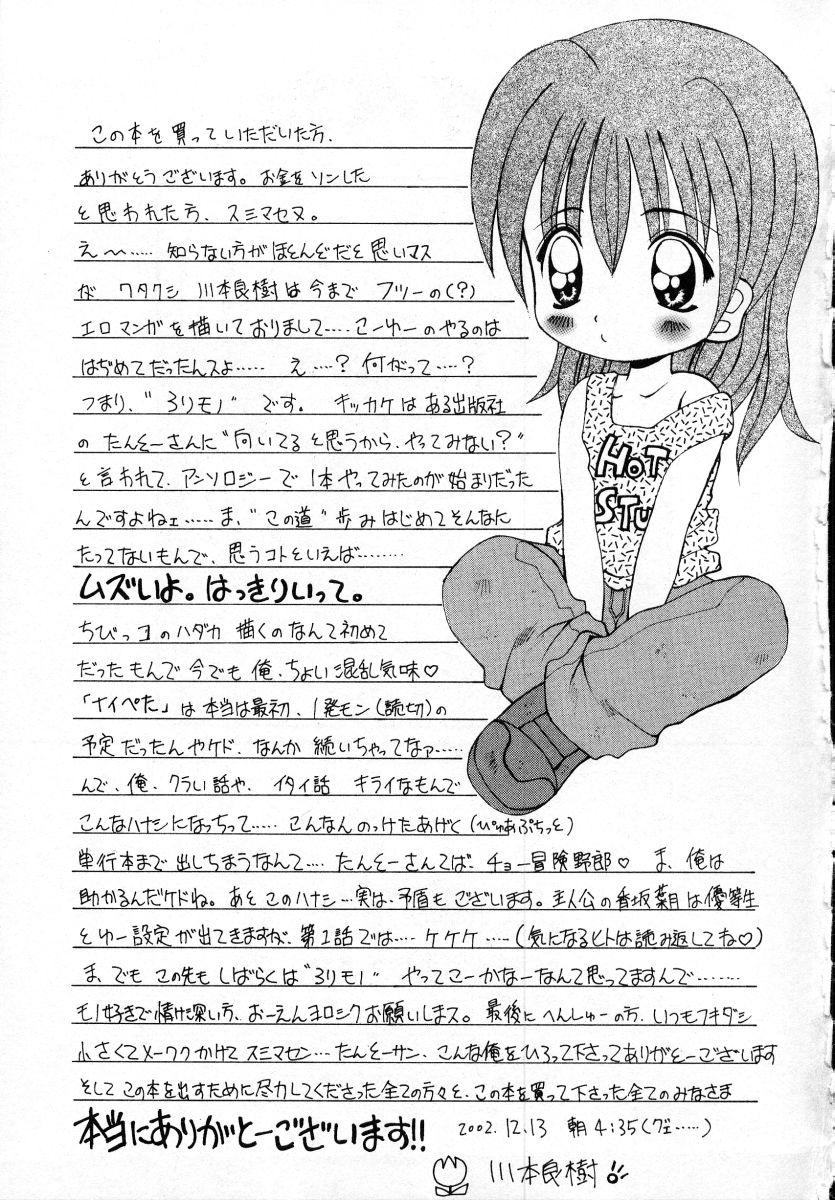 この本を買っていただいた方、
ありがとうございます。お金をソンした
と思われた方、スミマセヌ。
え〜…… 知らない方がほとんどだと思いマス
が ワタクシ 川本良樹は今まで フツーの(?)
エロマンガを描いておりまして…… こーゆーのやるのは
はぢめてだったんスよ…… え…? 何がって…?
つまり、"ろりモノ" です。 キッカケはある出版社
の たんとーさんに"向いてると思うから、やってみない?"
と言われて、アンソロジーで 1本やってみたのが始まりだった
んですよねェ…… ま、"この道"歩みはじめてそんなに
たってないもんで、思うコトといえば………
ムズいよ。はっきりいって。
ちびっコのハダカ 描くのなんて初めて
だったもんで今でも俺、ちょい混乱気味♡
「ナイぺた」は本当は最初、1発モン(読切)の
予定だったんやケド、なんか 続いちゃってなァ……
んで、俺、クラい話や、イタイ話 キライなもんで
こんなハナシになっちって…… こんなんのっけたあげく(ぴゅあぷちっと)
単行本まで出しちまうなんて…. たんとーさんてば、チョー冒険野郎♡ ま、俺は
助かるんだケドね。あと このハナシ…実は、矛盾もございます。主人公の香坂葉月は優等生
とゆー設定が出てきますが、第1話では…. ケケケ ….(気になるヒトは読み返してね♡)
ま、でも この先もしばらくは"ろりモノ" やってこーかなーなんて思ってますんで………
モノ好きで情け深い方、おーえんヨロシクお願いしまス。最後にへんしゅーの方、いつもフキダシ
小さくてメーワクかけて スミマセン…たんとーサン、こんな俺をひろって下さってありがとーございます
そして この本を出すために尽力してくださった全ての方々と、この本を買って下さった全てのみなさま
本当にありがとーございます!!
2002.12.13 朝4:35(グェ……)
川本良樹
HOT
STU